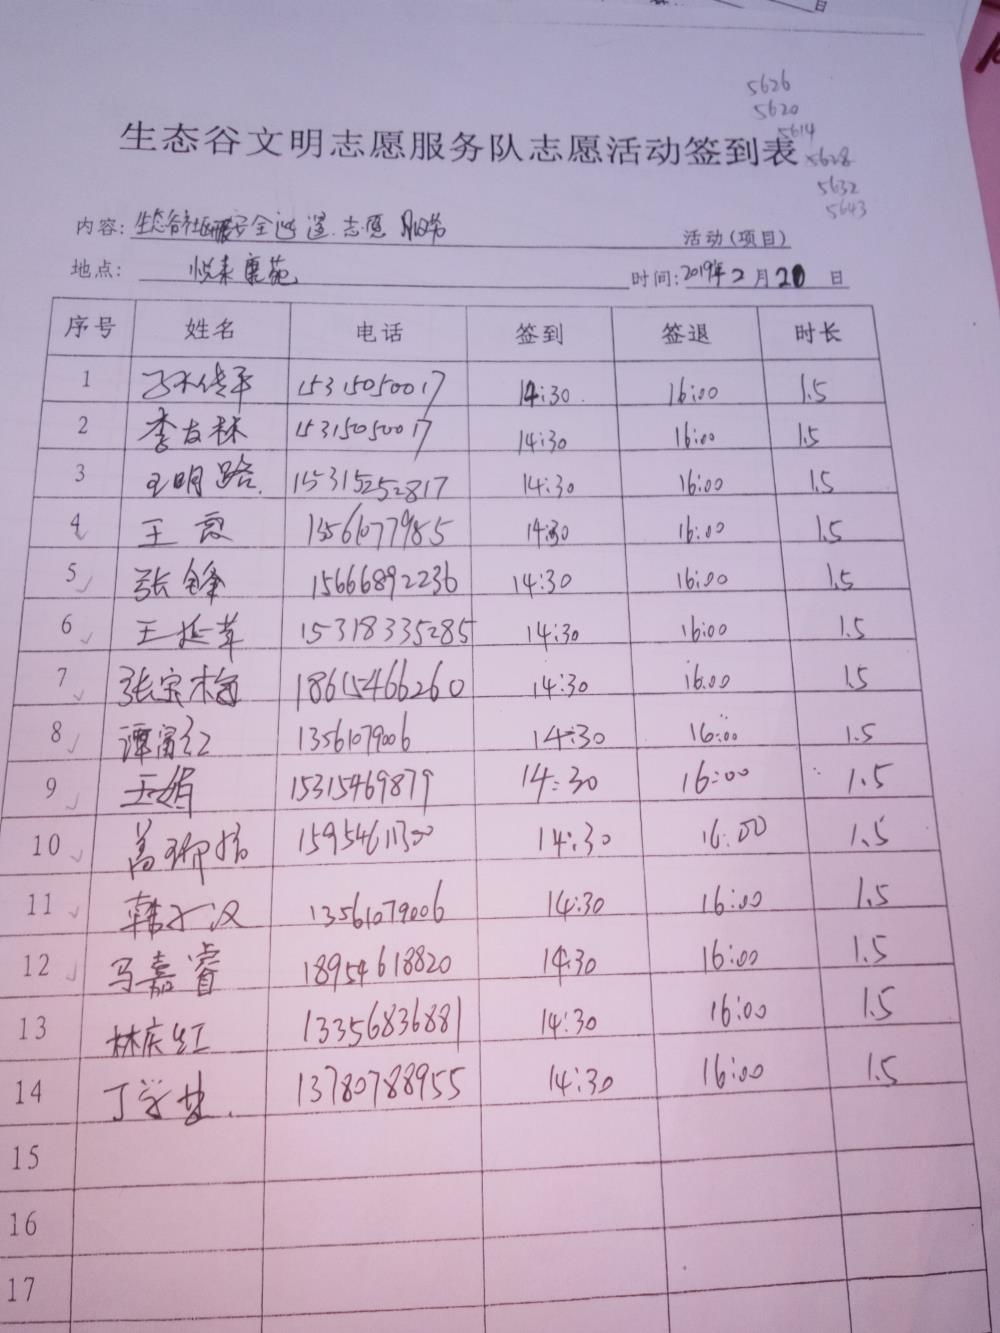 5626
5620
5614
5628
5632
5643
生态谷文明志愿服务队志愿活动签到表
内容: 生态谷社区 安全 志愿服务 活动(项目)
地点: 悦来康苑 时间: 2019年2月20日
序号 姓名 电话 签到 签退 时长
1 孙传平 15315050017 14:30 16:00 1.5
2 李友林 15315050017 14:30 16:00 1.5
3 王明路 15315252817 14:30 16:00 1.5
4 王 13561077985 14:30 16:00 1.5
5 张锋 15666892236 14:30 16:00 1.5
6 王延苹 15318335285 14:30 16:00 1.5
7 张宝梅 18615466260 14:30 16:00 1.5
8 谭富红 13561079006 14:30 16:00 1.5
9 王娟 15315469879 14:30 16:00 1.5
10 15954611300 14:30 16:00 1.5
11 韩 13561079006 14:30 16:00 1.5
12 马嘉睿 18954618820 14:30 16:00 1.5
13 林庆红 13356836881 14:30 16:00 1.5
14 丁学 13780788955 14:30 16:00 1.5
15
16
17